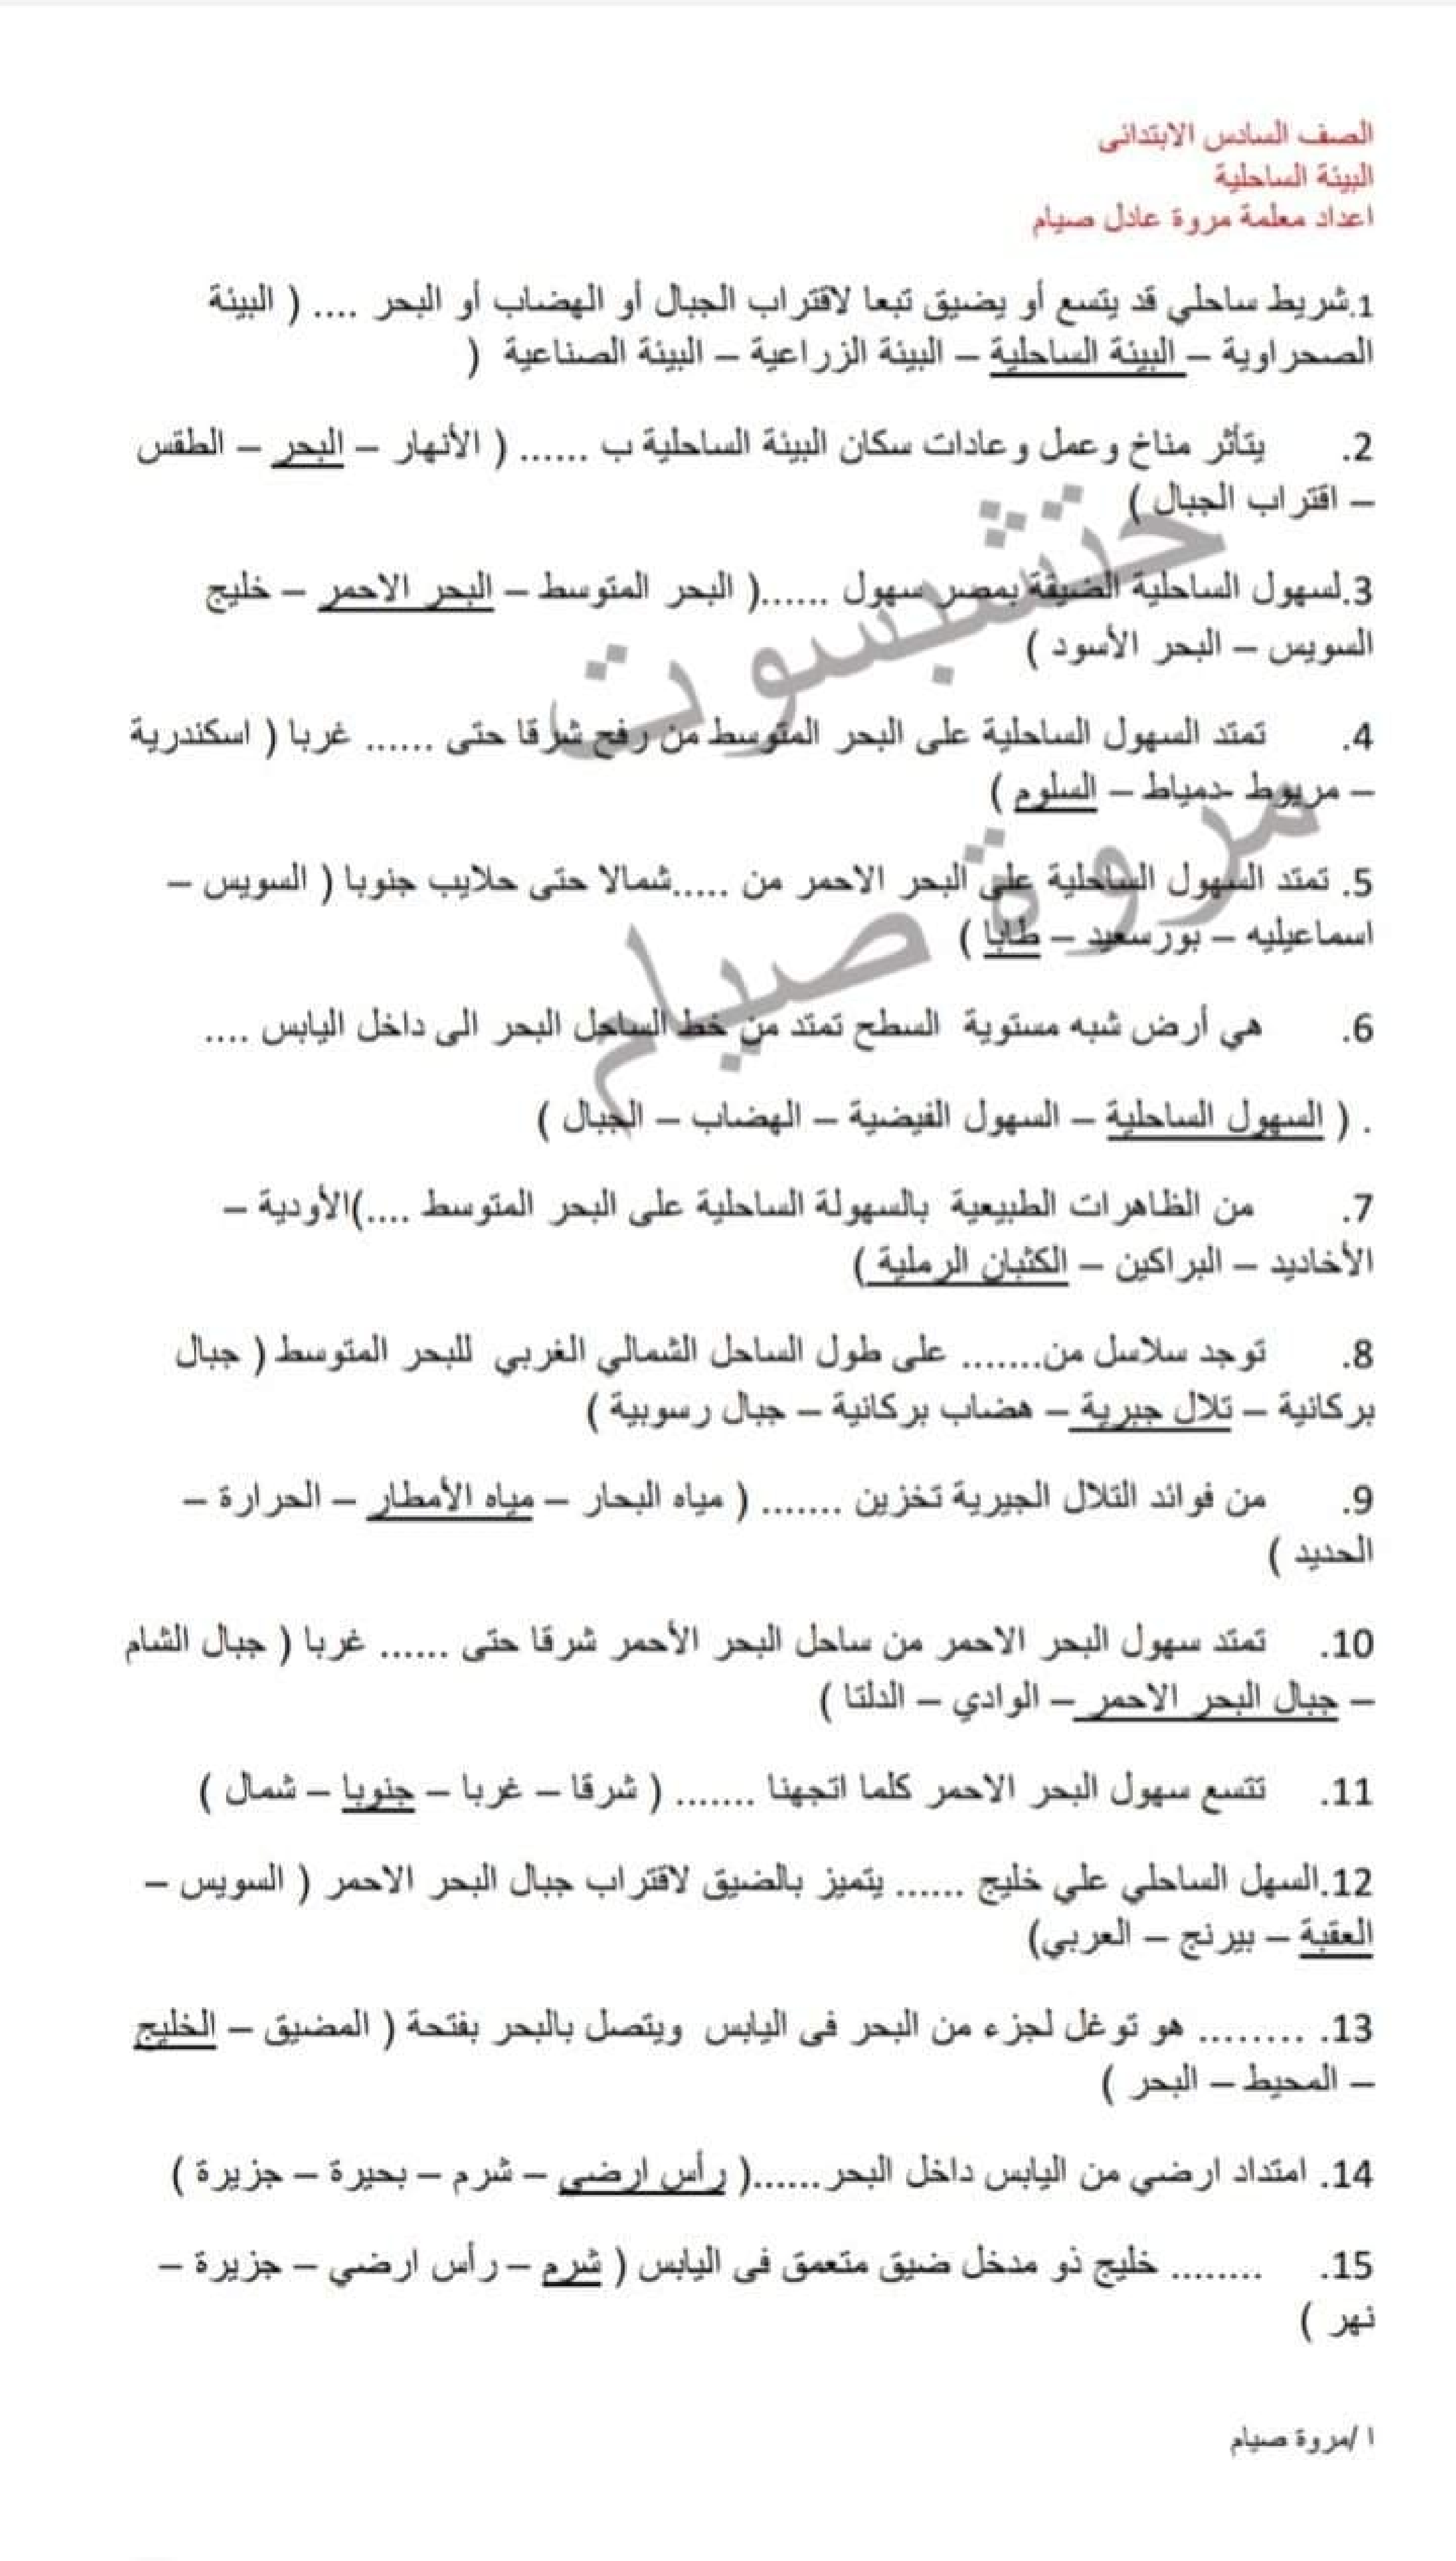 الصف السادس الابتدائى
البيئة الساحلية
اعداد معلمة مروة عادل صيام
1.شريط ساحلي قد يتسع أو يضيق تبعا لاقتراب الجبال أو الهضاب أو البحر .... ( البيئة
الصحراوية – البيئة الساحلية – البيئة الزراعية – البيئة الصناعية (
2. يتأثر مناخ وعمل وعادات سكان البيئة الساحلية ب ...... ( الأنهار – البحر – الطقس
– اقتراب الجبال )
3.لسهول الساحلية الضيقة بمصر سهول ......( البحر المتوسط – البحر الاحمر – خليج
السويس – البحر الأسود )
4. تمتد السهول الساحلية على البحر المتوسط من رفح شرقا حتى ...... غربا ( اسكندرية
– مريوط -دمياط – السلوم )
5. تمتد السهول الساحلية على البحر الاحمر من .....شمالا حتى حلايب جنوبا ( السويس –
اسماعيليه – بورسعيد – طابا )
6. هي أرض شبه مستوية السطح تمتد من خط الساحل البحر الى داخل اليابس ....
. ( السهول الساحلية – السهول الفيضية – الهضاب – الجبال )
7. من الظاهرات الطبيعية بالسهولة الساحلية على البحر المتوسط ....)الأودية –
الأخاديد – البراكين – الكثبان الرملية )
8. توجد سلاسل من....... على طول الساحل الشمالي الغربي للبحر المتوسط ( جبال
بركانية – تلال جبرية – هضاب بركانية – جبال رسوبية )
9. من فوائد التلال الجيرية تخزين ....... ( مياه البحار – مياه الأمطار – الحرارة –
الحديد )
10. تمتد سهول البحر الاحمر من ساحل البحر الأحمر شرقا حتى ...... غربا ( جبال الشام
– جبال البحر الاحمر – الوادي – الدلتا )
11. تتسع سهول البحر الاحمر كلما اتجهنا ....... ( شرقا – غربا – جنوبا – شمال )
12.السهل الساحلي علي خليج ...... يتميز بالضيق لاقتراب جبال البحر الاحمر ( السويس –
العقبة – بيرنج – العربي)
13. ........ هو توغل لجزء من البحر فى اليابس ويتصل بالبحر بفتحة ( المضيق – الخليج
– المحيط – البحر )
14. امتداد ارضي من اليابس داخل البحر......( رأس ارضى – شرم – بحيرة – جزيرة )
15. ........ خليج ذو مدخل ضيق متعمق فى اليابس ( شرم – رأس ارضي – جزيرة –
نهر )
ا /مروة صيام
حتشبسوت
مروة صيام